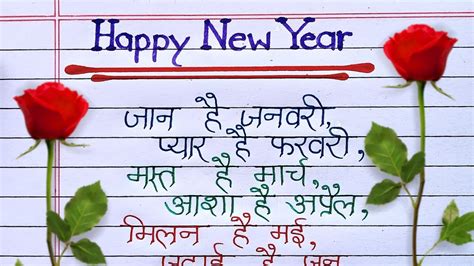 Happy New Year
जान है जनवरी,
प्यार है फरवरी,
मस्त है मार्च,
आशा है अप्रैल,
मिलन है मई,
है जून